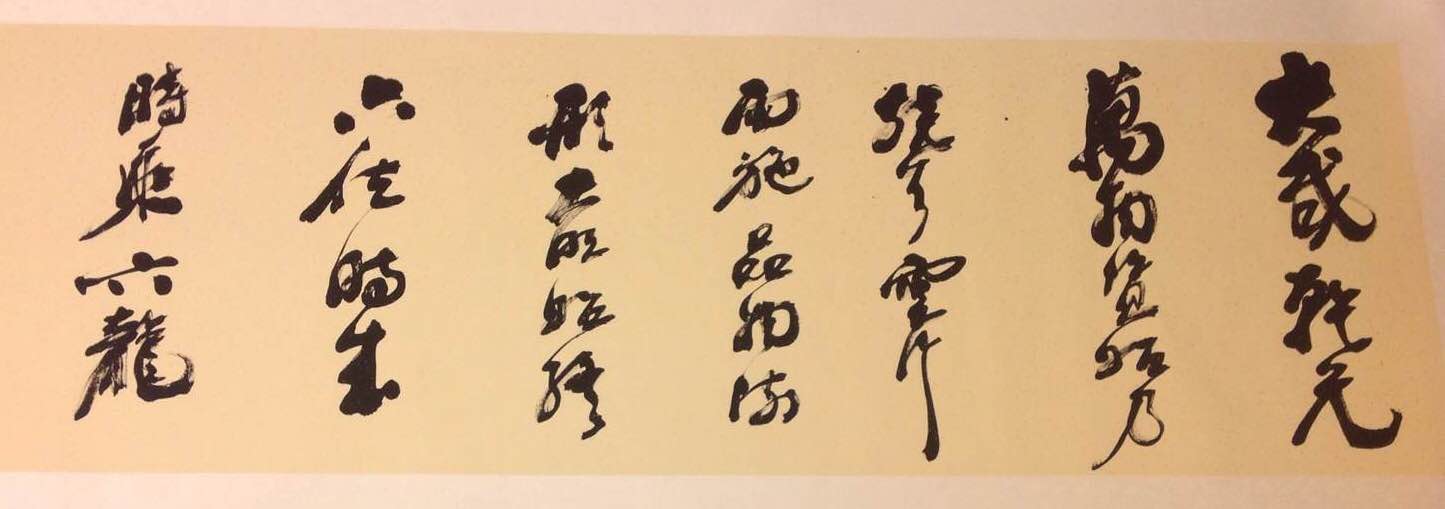 大哉乾元
萬物資始乃
統天雲行
雨施品物流
形大明始終
六位時成
時乘六龍